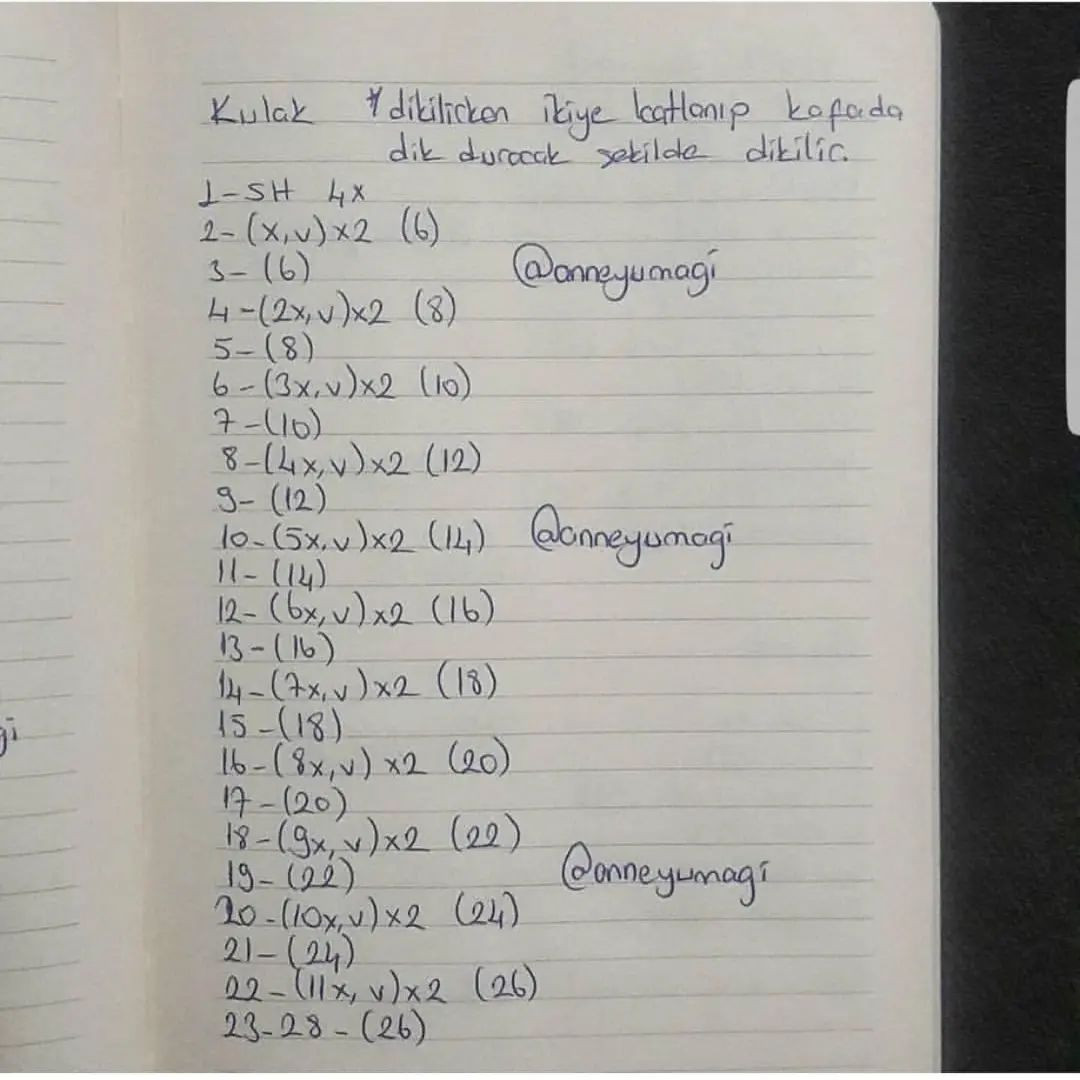 Kulak * dikilirken ikiye katlanıp kafada
dik duracak şekilde dikilir.
1-SH 4x
2-(x,v)x2 (6)
3-(6)
@anneyumagi
4-(2x,v)x2 (8)
5-(8)
6-(3x,v)x2 (10)
7-(10)
8-(4x,v)x2 (12)
9-(12)
10-(5x,v)x2 (14) @anneyumagi
11-(14)
12-(6x,v)x2 (16)
13-(16)
14-(7x,v)x2 (18)
15-(18)
16-(8x,v)x2 (20)
17-(20)
18-(9x,v)x2 (22)
19-(22) @anneyumagi
20-(10x,v)x2 (24)
21-(24)
22-(11x,v)x2 (26)
23-28-(26)